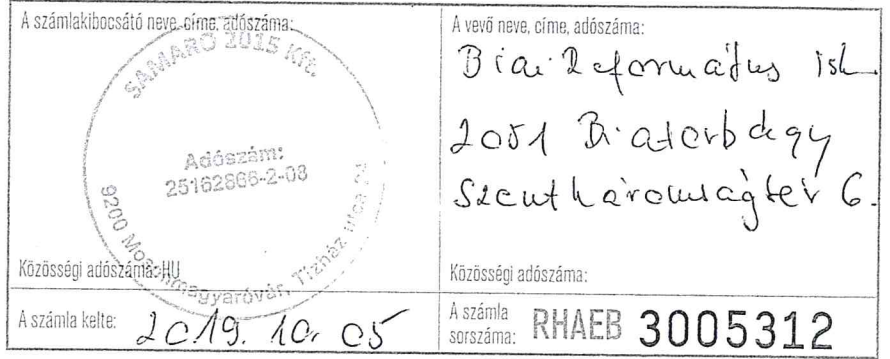 A számlakibocsátó neve, címe, adószáma:
SAMARO 2015 Kft.
Adószám:
25162866-2-08
9200 Mosonmagyaróvár, Tízház utca
Közösségi adószáma: HU
A számla kelte: 2019. 10. 05
A vevő neve, címe, adószáma:
Biai Református isk.
2051 Biatorbágy
Szentháromság tér 6.
Közösségi adószáma:
A számla sorszáma: RHAEB 3005312